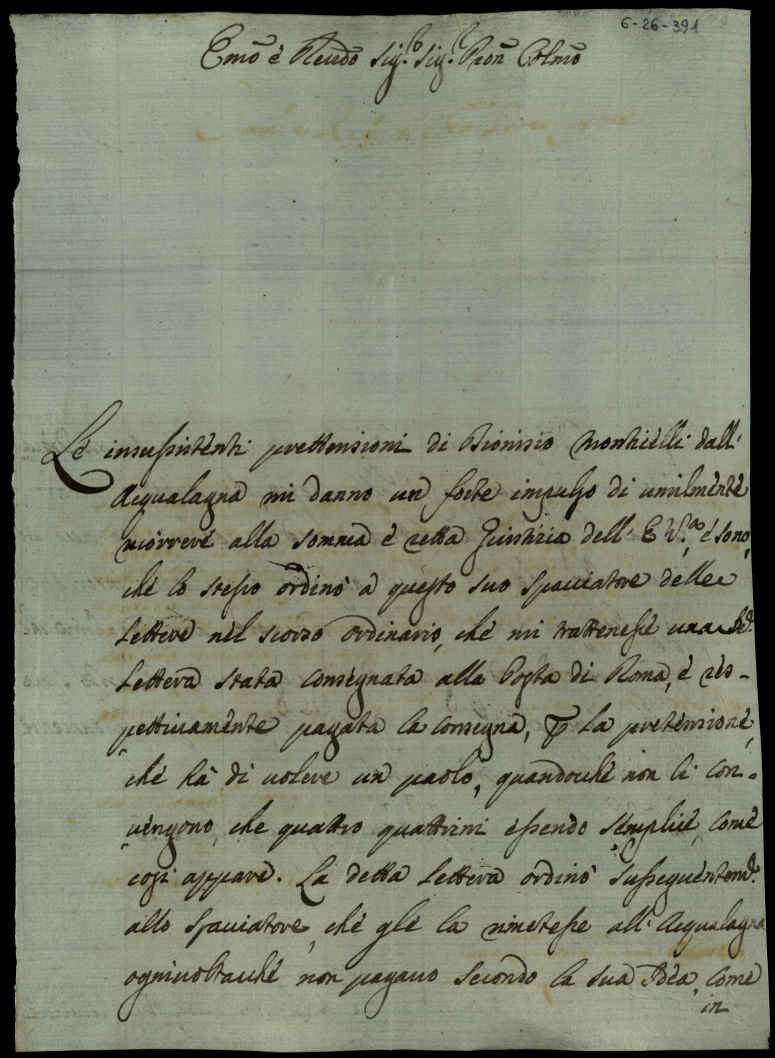 6-26-391
Emo è Rendo Sig.r Sig.r Pron Colmo
Le insussistenti prettensioni di Dionisio Monticelli dall'
Acqualagna mi danno un forte impulso di umilmente
ricorrere alla somma è retta Giustizia dell' E V.ra è sono,
che lo stesso ordinò a questo suo spacciatore delle
lettere nel scorso ordinario, che mi trattenesse una
lettera stata consegnata alla Posta di Roma, è ris-
pettivamente pagata la consegna, p la pretensione,
che hà di volere un paolo, quandoche non li con-
vengono, che quattro quattrini essendo semplice, come
cosi appare. La detta lettera ordinò susseguentem.e
allo spacciatore, che gle la rimetesse all' Acqualagna
ogniuoltache non pagavo secondo la sua Idea, come
in